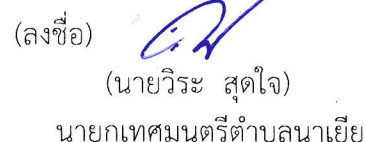 (ลงชื่อ)
(นายวิระ สุดใจ)
นายกเทศมนตรีตำบลนาเยีย